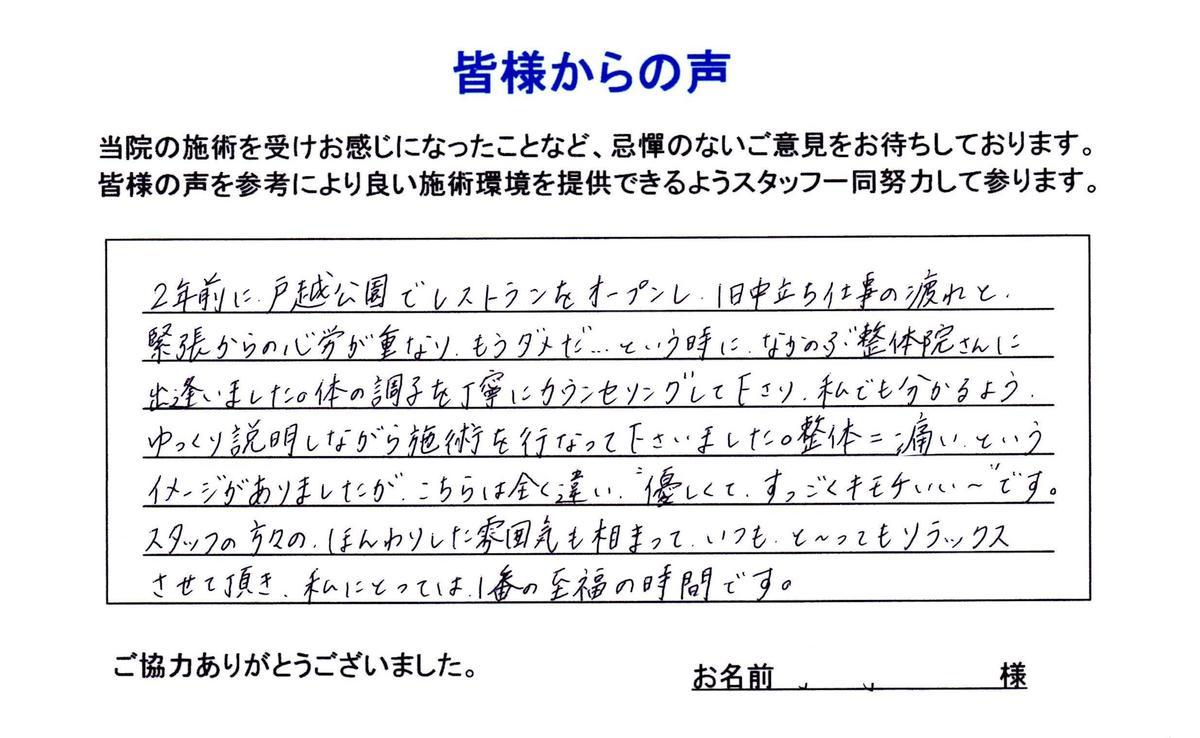 皆様からの声
当院の施術を受けお感じになったことなど、忌憚のないご意見をお待ちしております。
皆様の声を参考により良い施術環境を提供できるようスタッフ一同努力して参ります。
2年前に、戸越公園でレストランをオープンし、1日中立ち仕事の疲れと、
緊張からの心労が重なり、もうダメだ…という時に、なかのぶ整体院さんに
出逢いました。体の調子を丁寧にカウンセリングして下さり、私でも分かるよう、
ゆっくり説明しながら施術を行なって下さいました。整体=痛い、という
イメージがありましたが、こちらは全く違い、"優しくて、すっごくキモチいい〜"です。
スタッフの方々の、ほんわりした雰囲気も相まって、いつも、と〜ってもリラックス
させて頂き、私にとっては、1番の至福の時間です。
ご協力ありがとうございました。
お名前 様